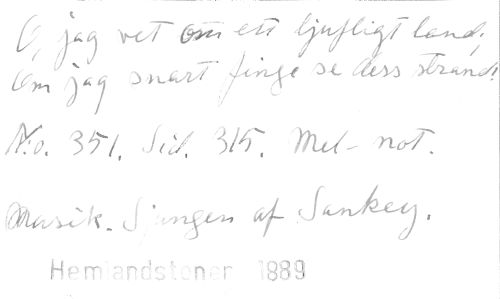 O, jag vet om ett ljufligt land;
Om jag snart finge se dess strand!
No. 351. Sid. 315. Mel-not.
Musik. Sjungen af Sankey.
Hemlandstoner 1889